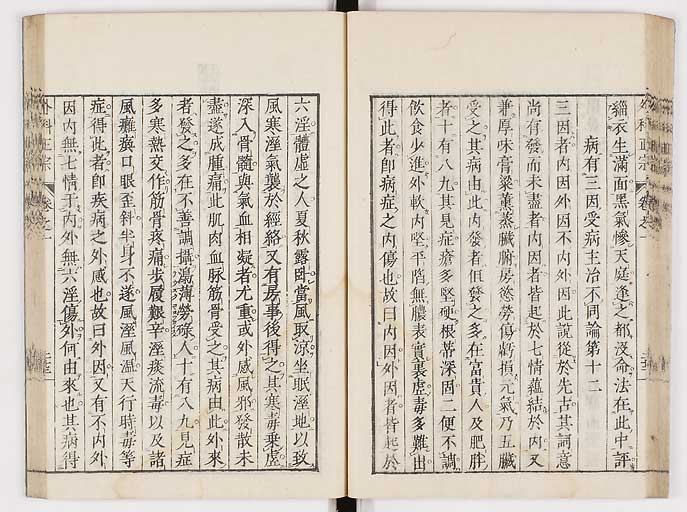 緇衣生滿面黑氣慘天庭逢之都沒侖法在此中評
病有三因受病主治不同論第十二
三因者内因外因不内外因此說從於先古其詞意
尚有發而未盡者内因者皆起於七情蘊結於内又
兼厚味膏粱薫蒸臟腑房慾勞傷虧損元氣乃五臟
受之其病由此内發者但發之多在富貴人及肥胖
者十有八九其見症瘡多堅硬根蒂深固二便不調
飲食少進外軟内堅平陷無膿表實裏虛毒多難出
得此者即病症之内傷也故曰内因外因者皆起於
六淫體虛之人夏秋露臥當風取涼坐眠溼地以致
風寒溼氣襲於經絡又有房事後得之其寒毒乘虛
深入骨髓與氣血相凝者尤重或外感風邪發散未
盡遂成腫痛此肌肉血脈筋骨受之其病由此外來
者發之多在不善調攝澆薄勞碌人十有八九見症
多寒熱交作筋骨疼痛步履艱辛溼痰流毒以及諸
風癱瘓口眼歪斜半身不遂風溼風溫天行時毒等
症得此者即疾病之外感也故曰外因又有不内外
因内無七情于内外無六淫傷外何由來也其病得
外科正宗
卷之一